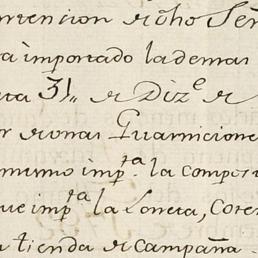 ntencion de dho Señ
a importado la demas
ta 31,, de Diz.e de
or de unas Guarnicione
mismo imp.ta la compos
ue imp.ta la Loneta, Corde
a tienda de campaña.